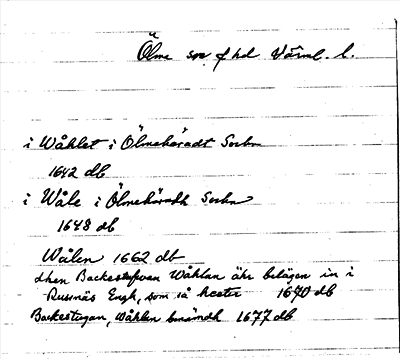 Ölme sn f hd Värml. l.
i Wåhlet i Ölmehäradt Sochn
1642 db
i Wåle i Ölmehäradh Sochn
1648 db
Wålen 1662 db
dhen Backestufwan Wåhlan ähr belägen in i
Russnäs Engh, som så heeter 1670 db
Backestugan, Wåhlen benämdh 1677 db